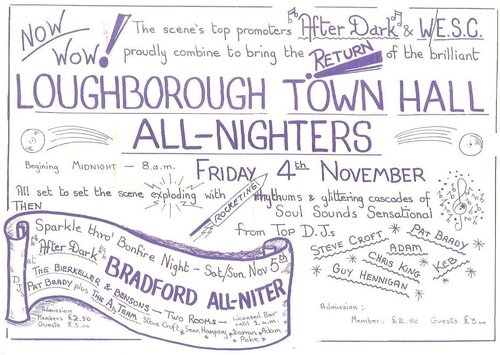 NOW WOW!
The scene's top promoters "After Dark" & W.E.S.C.
proudly combine to bring the RETURN of the brilliant
LOUGHBOROUGH TOWN HALL
ALL-NIGHTERS
Begining MIDNIGHT — 8.a.m. FRIDAY 4th NOVEMBER
All set to set the scene exploding with ROCKETING rhythums & glittering cascades of
Soul Sounds Sensational
from TOP D.J.s
STEVE CROFT PAT BRADY
ADAM
CHRIS KING KEB
GUY HENNIGAN
Admission:
Members £2.50 Guests £3.00
THEN
Sparkle thro' Bonfire Night — Sat/Sun Nov 5th
"After Dark" BRADFORD ALL-NITER
at THE BIERKELLER & BENSONS — TWO ROOMS — Licensed Bar until 2 a.m.
D.J.s PAT BRADY plus THE 'A' TEAM Steve Croft, Sean Hampsey,
Adam
Poke
Admission
Members £2.50
Guests £3.00